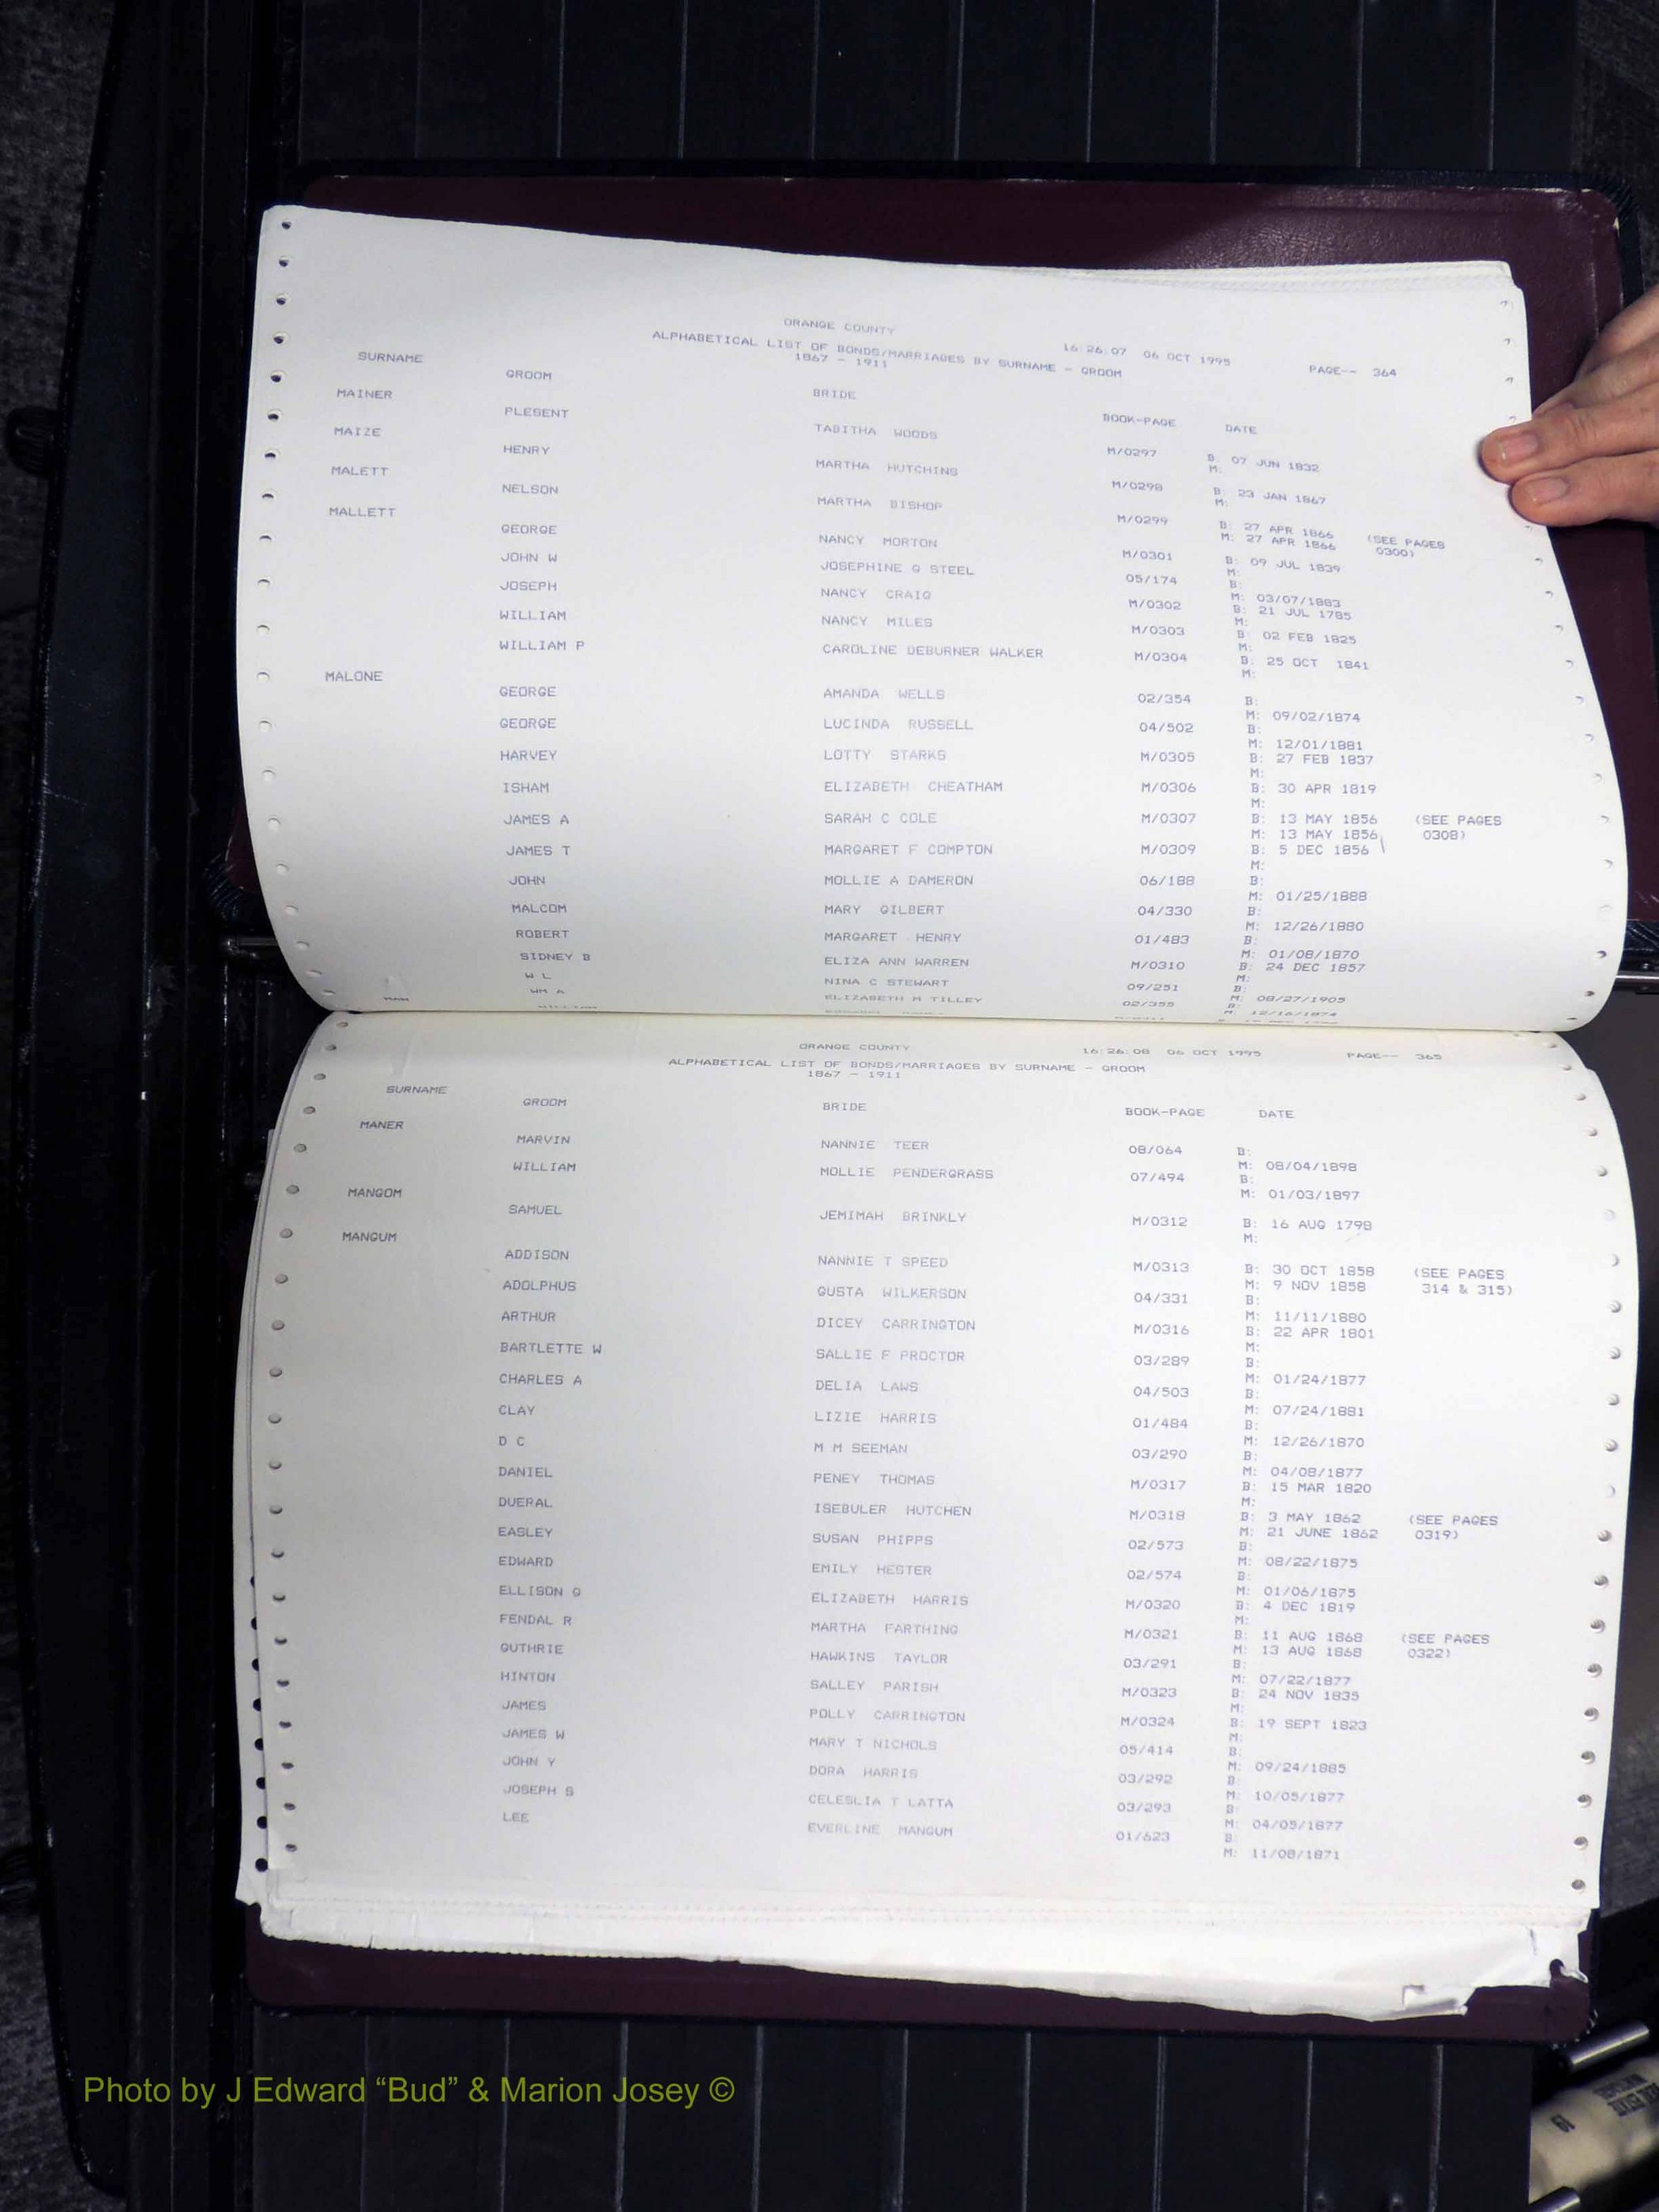 ORANGE COUNTY 16:26:07 06 OCT 1995 PAGE-- 364
ALPHABETICAL LIST OF BONDS/MARRIAGES BY SURNAME - GROOM
1867 - 1911
SURNAME GROOM BRIDE BOOK-PAGE DATE
MAINER
PLESENT TABITHA WOODS M/0297 B: 07 JUN 1832
M:
MAIZE
HENRY MARTHA HUTCHINS M/0298 B: 23 JAN 1867
M:
MALETT
NELSON MARTHA BISHOP M/0299 B: 27 APR 1866 (SEE PAGES
M: 27 APR 1866 0300)
MALLETT
GEORGE NANCY MORTON M/0301 B: 09 JUL 1839
M:
JOHN W JOSEPHINE G STEEL 05/174 B:
M: 03/07/1883
JOSEPH NANCY CRAIG M/0302 B: 21 JUL 1785
M:
WILLIAM NANCY MILES M/0303 B: 02 FEB 1825
M:
WILLIAM P CAROLINE DEBURNER WALKER M/0304 B: 25 OCT 1841
M:
MALONE
GEORGE AMANDA WELLS 02/354 B:
M: 09/02/1874
GEORGE LUCINDA RUSSELL 04/502 B:
M: 12/01/1881
HARVEY LOTTY STARKS M/0305 B: 27 FEB 1837
M:
ISHAM ELIZABETH CHEATHAM M/0306 B: 30 APR 1819
M:
JAMES A SARAH C COLE M/0307 B: 13 MAY 1856 (SEE PAGES
M: 13 MAY 1856 0308)
JAMES T MARGARET F COMPTON M/0309 B: 5 DEC 1856
M:
JOHN MOLLIE A DAMERON 06/188 B:
M: 01/25/1888
MALCOM MARY GILBERT 04/330 B:
M: 12/26/1880
ROBERT MARGARET HENRY 01/483 B:
M: 01/08/1870
SIDNEY B ELIZA ANN WARREN M/0310 B: 24 DEC 1857
M:
W L NINA C STEWART 09/251 B:
M: 08/27/1905
WM A ELIZABETH M TILLEY 02/355 B:
M: 12/16/1874
MAN
ORANGE COUNTY 16:26:08 06 OCT 1995 PAGE-- 365
ALPHABETICAL LIST OF BONDS/MARRIAGES BY SURNAME - GROOM
1867 - 1911
SURNAME GROOM BRIDE BOOK-PAGE DATE
MANER
MARVIN NANNIE TEER 08/064 B:
M: 08/04/1898
WILLIAM MOLLIE PENDERGRASS 07/494 B:
M: 01/03/1897
MANGOM
SAMUEL JEMIMAH BRINKLY M/0312 B: 16 AUG 1798
M:
MANGUM
ADDISON NANNIE T SPEED M/0313 B: 30 OCT 1858 (SEE PAGES
M: 9 NOV 1858 314 & 315)
ADOLPHUS GUSTA WILKERSON 04/331 B:
M: 11/11/1880
ARTHUR DICEY CARRINGTON M/0316 B: 22 APR 1801
M:
BARTLETTE W SALLIE F PROCTOR 03/289 B:
M: 01/24/1877
CHARLES A DELIA LAWS 04/503 B:
M: 07/24/1881
CLAY LIZIE HARRIS 01/484 B:
M: 12/26/1870
D C M M SEEMAN 03/290 B:
M: 04/08/1877
DANIEL PENEY THOMAS M/0317 B: 15 MAR 1820
M:
DUERAL ISEBULER HUTCHEN M/0318 B: 3 MAY 1862 (SEE PAGES
M: 21 JUNE 1862 0319)
EASLEY SUSAN PHIPPS 02/573 B:
M: 08/22/1875
EDWARD EMILY HESTER 02/574 B:
M: 01/06/1875
ELLISON G ELIZABETH HARRIS M/0320 B: 4 DEC 1819
M:
FENDAL R MARTHA FARTHING M/0321 B: 11 AUG 1868 (SEE PAGES
M: 13 AUG 1868 0322)
GUTHRIE HAWKINS TAYLOR 03/291 B:
M: 07/22/1877
HINTON SALLEY PARISH M/0323 B: 24 NOV 1835
M:
JAMES POLLY CARRINGTON M/0324 B: 19 SEPT 1823
M:
JAMES W MARY T NICHOLS 05/414 B:
M: 09/24/1885
JOHN Y DORA HARRIS 03/292 B:
M: 10/05/1877
JOSEPH S CELESLIA T LATTA 03/293 B:
M: 04/05/1877
LEE EVERLINE MANGUM 01/623 B:
M: 11/08/1871
Photo by J Edward “Bud” & Marion Josey ©